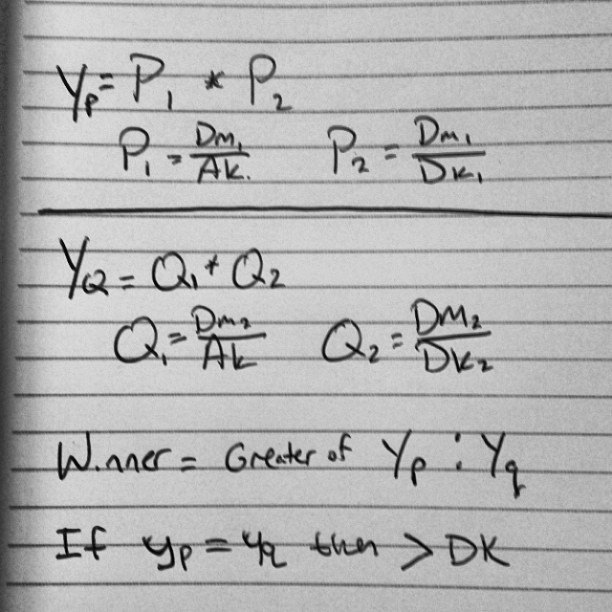 Yp = P1 * P2
P1 = Dm1/Ak. P2 = Dm1/Dk1
YQ = Q1 * Q2
Q1 = Dm2/Ak Q2 = Dm2/Dk2
Winner = Greater of Yp : Yq
If yp = yq then > DK